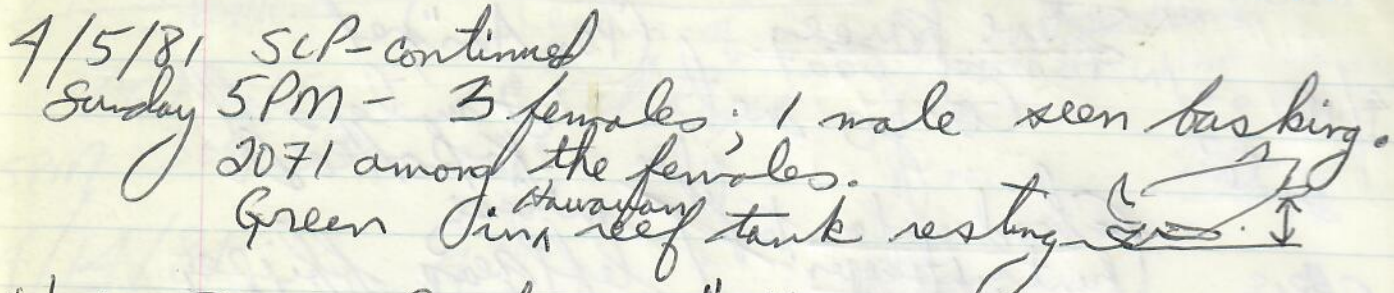 4/5/81 SLP-continued
Sunday 5PM - 3 females; 1 male seen basking.
2071 among the females.
Green in Hawaiian reef tank resting